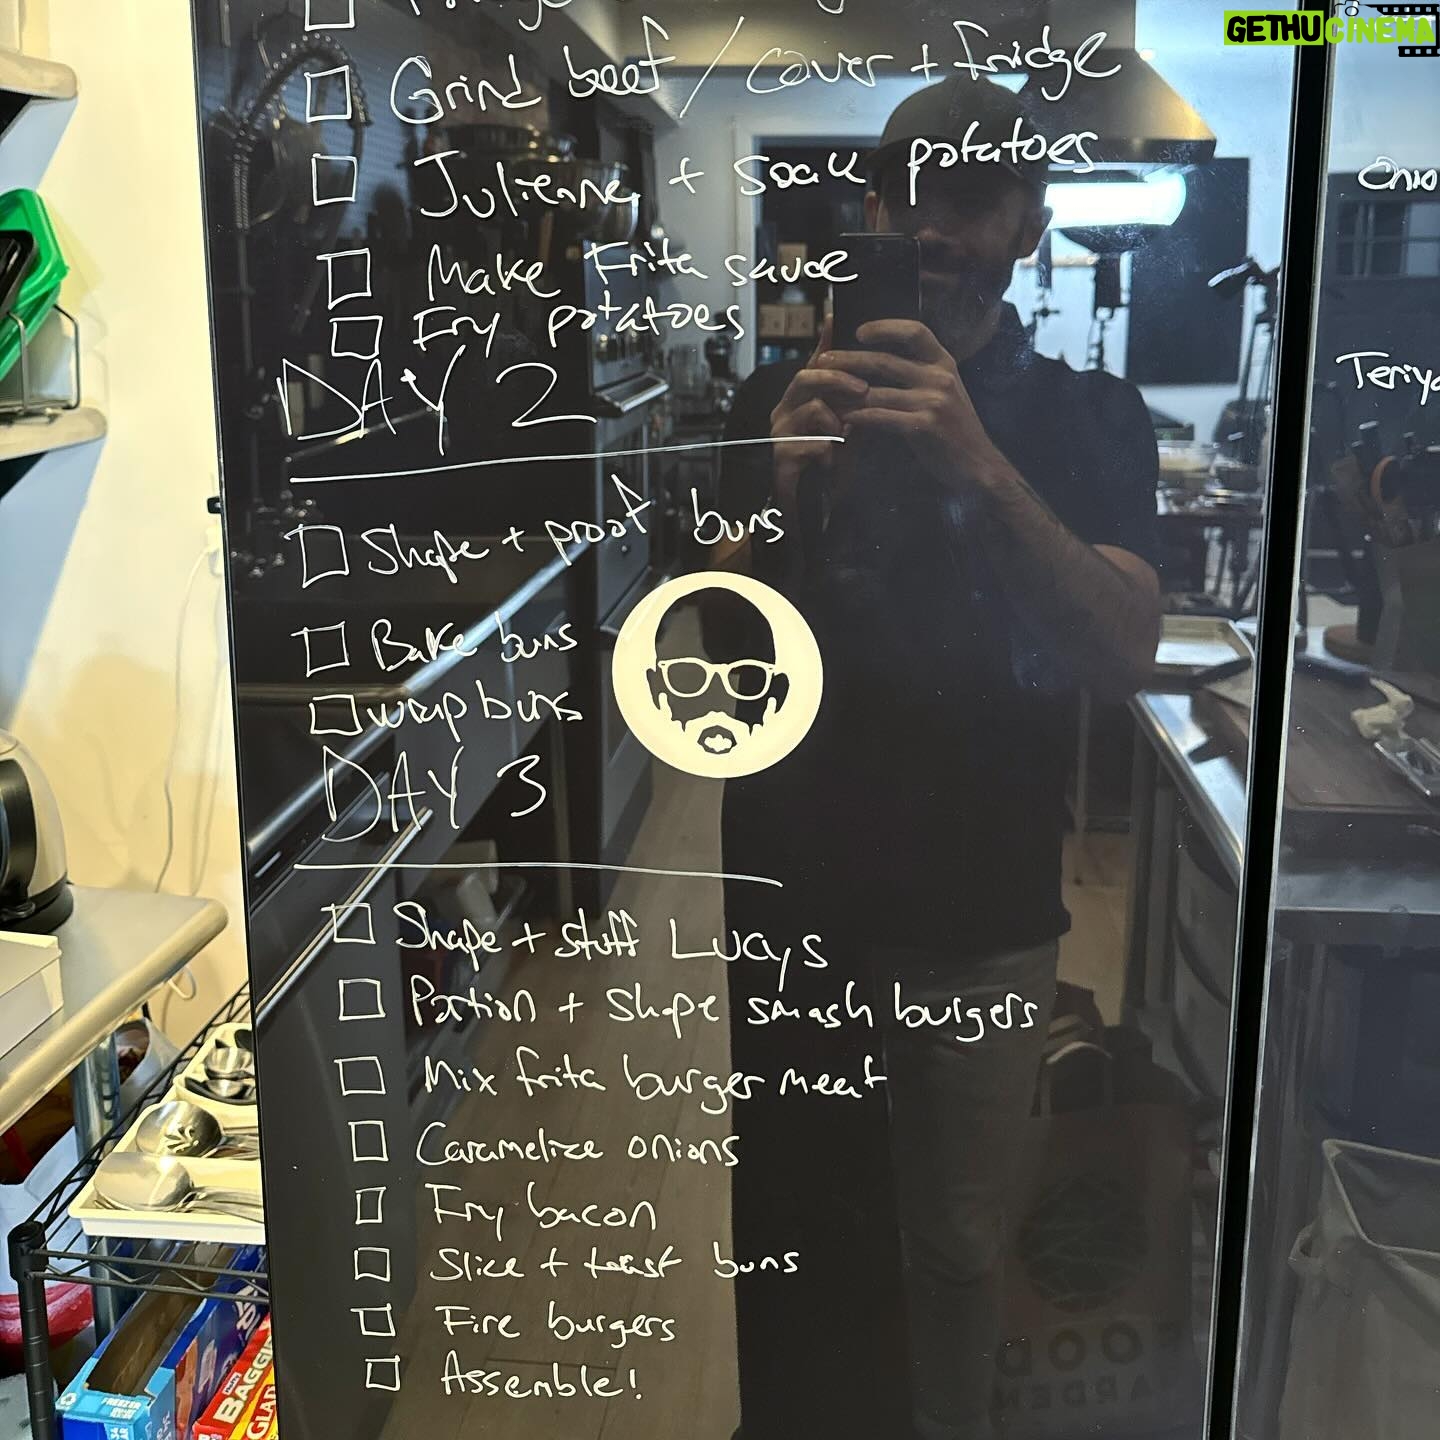 GETHUCINEMA
Grind beef / cover + fridge
Julienne + soak potatoes
Make Frita sauce
Fry potatoes
DAY 2
Shape + proof buns
Bake buns
wrap buns
DAY 3
Shape + stuff Lucys
Portion + shape smash burgers
Mix frita burger meat
Caramelize onions
Fry bacon
Slice + toast buns
Fire burgers
Assemble!
Onio
Teriya
FREEZER
BAGGI
GLAD
FOOD